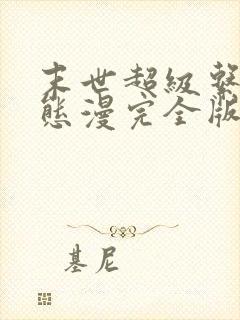 末世超級系
態漫完全版
基尼